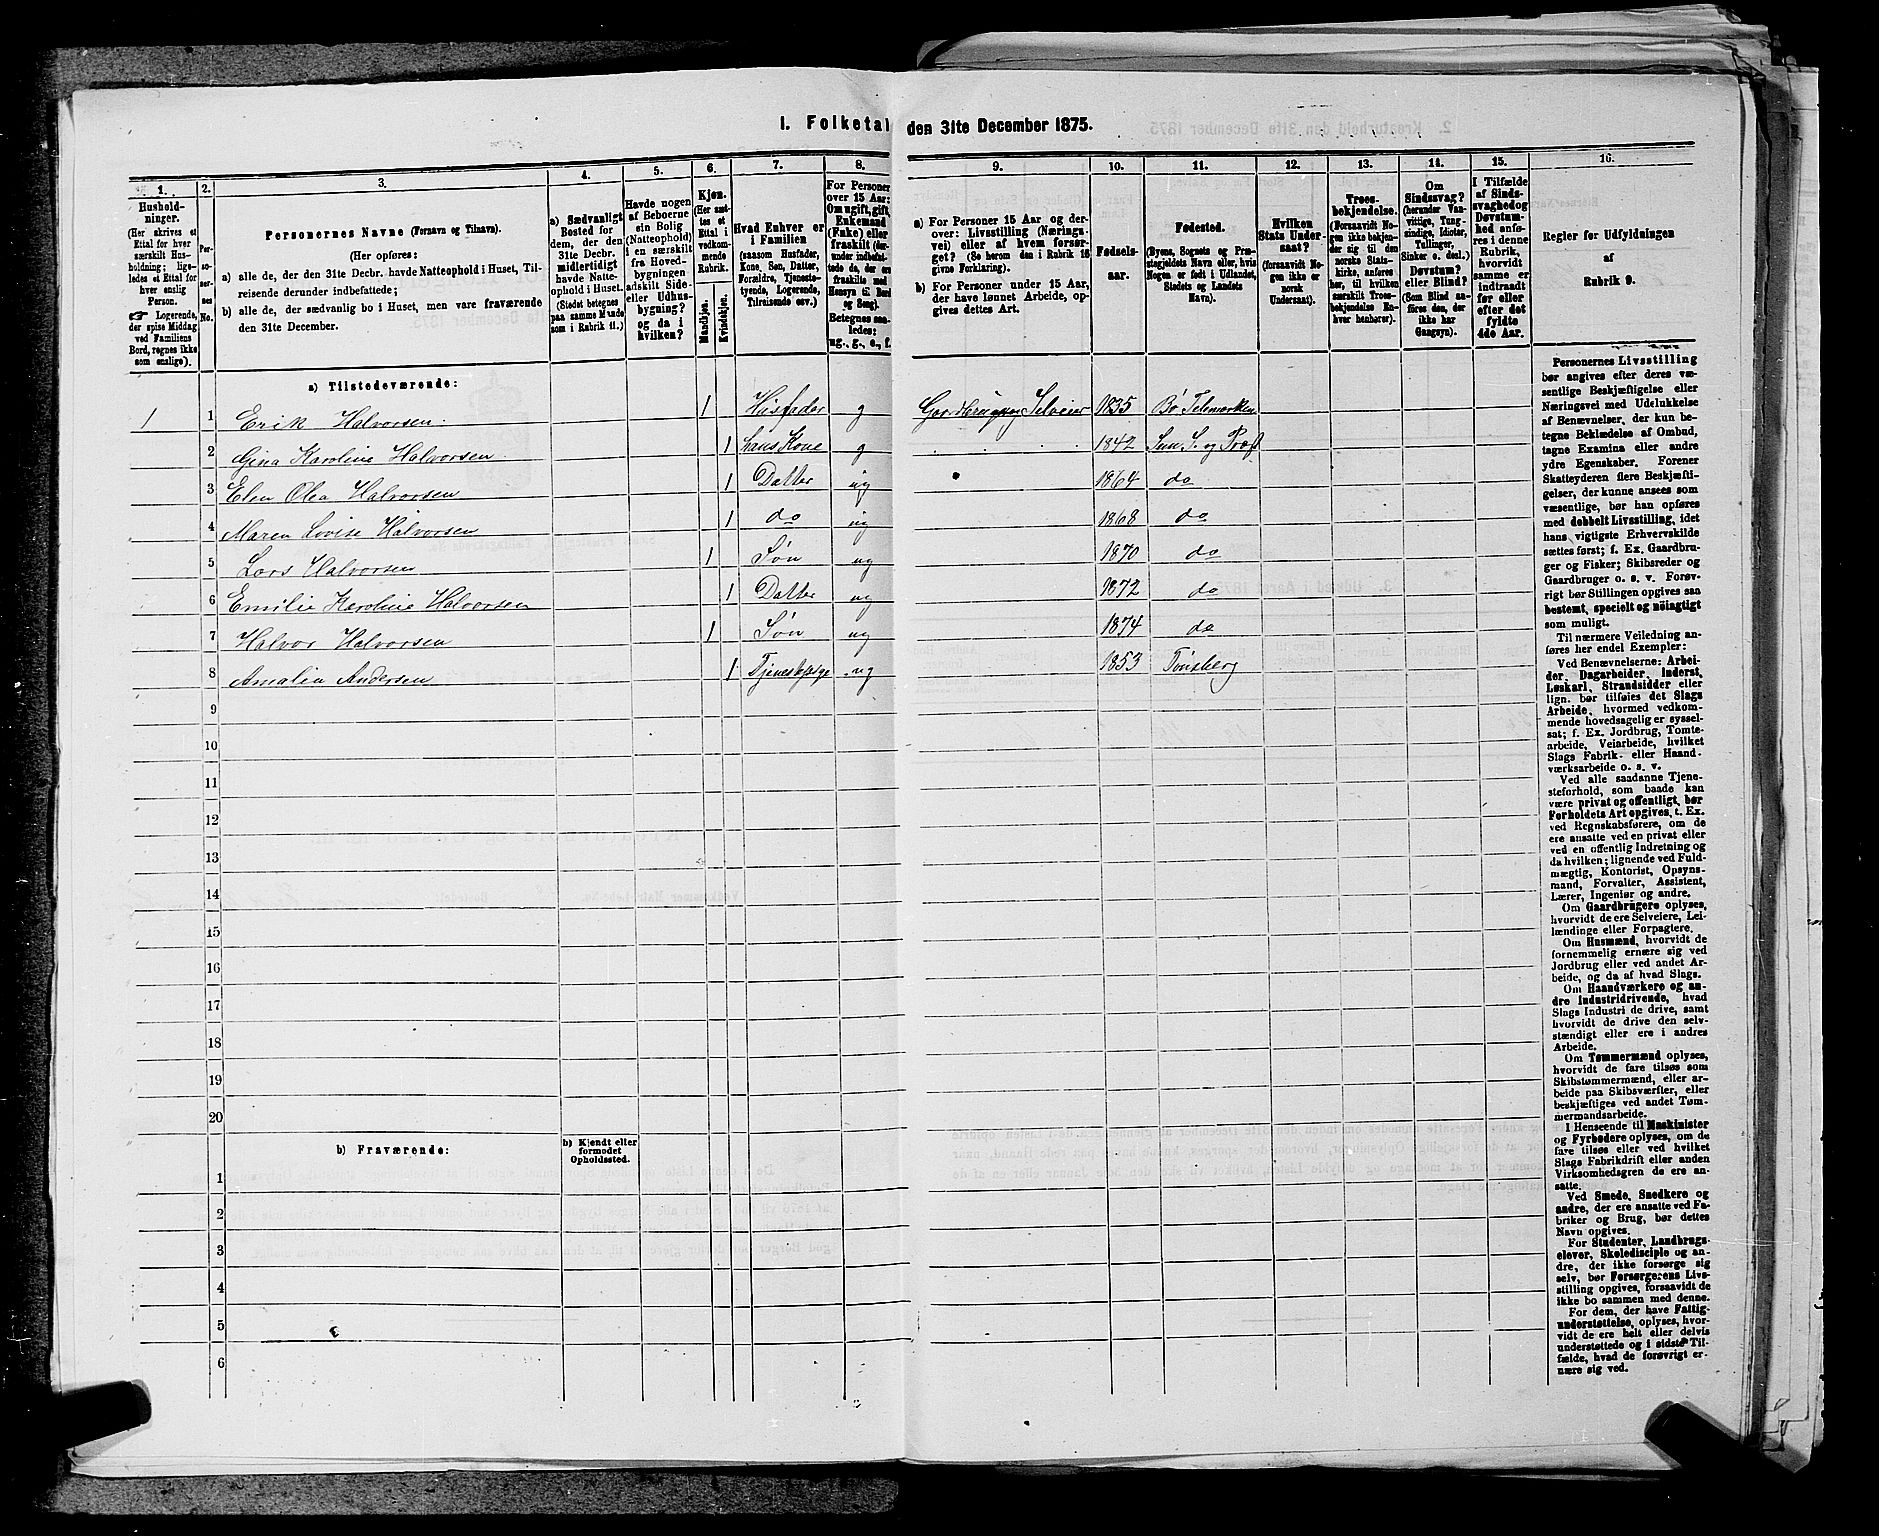 1. Folketal den 31te December 1875.
1. 2. 3. 4. 5. 6. 7. 8. 9. 10. 11. 12. 13. 14. 15. 16.
Hushold-
ninger.
(Her skrives et
Ettal for hver
særskilt Hus-
holdning; lige-
ledes et Ettal for
hver enslig
Person.
☞ Logerende,
der spise Middag
ved Familiens
Bord, regnes ikke
som enslige).
Per-
so-
ner-
nes
No.
Personernes Navne (Fornavn og Tilnavn).
(Her opføres:
a) alle de, der den 31te Decbr. havde Natteophold i Huset, Til-
reisende derunder indbefattede;
b) alle de, der sædvanlig bo i Huset, men vare fraværende
den 31te December.
a) Sædvanligt
Bosted for
dem, der den
31te Decbr.
midlertidigt
havde Natte-
ophold i Huset.
(Stedet betegnes
paa samme Maade
som i Rubrik 11.)
Havde nogen
af Beboerne
sin Bolig
(Natteophold)
i en særskilt
fra Hoved-
bygningen
adskilt Side-
eller Udhus-
bygning?
og da i
hvilken?
Kjøn.
(Her sæt-
tes et
Ettal i
vedkom-
mende
Rubrik.
Mandkjøn.
Kvindekjøn.
Hvad Enhver er
i Familien
(saasom Husfader,
Kone, Søn, Datter,
Forældre, Tjeneste-
tyende, Logerende,
Tilreisende osv.)
For Personer
over 15 Aar:
Om ugift, gift,
Enkemand
(Enke) eller
fraskilt
Betegnes saa-
ledes:
ug., g., e., f.
a) For Personer 15 Aar og der-
over: Livsstilling (Nærings-
vei) eller af hvem forsør-
get? (Se herom den i Rubrik 16
givne Forklaring).
b) For Personer under 15 Aar,
der have lønnet Arbeide, op-
gives dettes Art.
Fødsels-
aar.
Fødested.
(Byens, Sognets og Præ-
stegjeldets Navn eller, hvis
Nogen er født i Udlandet,
Stedets og Landets
Navn).
Hvilken
Stats Under-
saat?
(forsaavidt No-
gen ikke er
norsk
Undersaat).
Troes-
bekjendelse.
(Forsaavidt No-
gen ikke bekjen-
der sig til den
norske Stats-
kirke, anføres
her, til hvilken
særskilt Troes-
bekjendelse En-
hver henhører).
Om
Sindssvag?
(herunder Van-
vittige, Tung-
sindige, Idioter,
Tullinger,
Sinker o. desl.)
Døvstum?
eller Blind?
(Som Blind an-
føres den, der
ikke har
Gangsyn).
I Tilfælde
af Sinds-
svaghed og
Døvstum-
hed anfø-
res i denne
Rubrik,
hvorvidt
samme er
indtraadt
før eller
efter det
fyldte
4de Aar.
Regler for Udfyldningen
af
Rubrik 9.
a) Tilstedeværende:
1 1 Erik Halvorsen 1 Husfader g Gaardbruger Selveier 1835 Bø Telemarken
2 Gina Karoline Halvorsen 1 hans Kone g 1842 Sem S. og Præst
3 Elen Olea Halvorsen 1 Datter ug 1864 do
4 Maren Lovise Halvorsen 1 do ug 1868 do
5 Lars Halvorsen 1 Søn ug 1870 do
6 Emilie Karoline Halvorsen 1 Datter ug 1872 do
7 Halvor Halvorsen 1 Søn ug 1874 do
8 Amalia Andersen 1 ug 1853 Tønsberg
9
10
11
12
13
14
15
16
17
18
19
20
b) Fraværende:
b) Kjendt eller
formodet
Opholdssted.
1
2
3
4
5
6
Personernes Livsstilling
bør angives efter deres væ-
sentlige Beskjæftigelse eller
Næringsvei med Udelukkelse
af Benævnelser, der kun be-
tegne Beklædelse af Ombud,
tagne Examina eller andre
ydre Egenskaber. Forener
Skatteyderen flere Beskjæfti-
gelser, der kunne ansees som
væsentlige, bør han opføres
med dobbelt Livsstilling, idet
hans vigtigste Erhvervskilde
sættes først; f. Ex. Gaardbru-
ger og Fisker; Skibsreder og
Gaardbruger o. s. v. Forøv-
rigt bør Stillingen opgives saa
bestemt, specielt og nøiagtigt
som muligt.
Til nærmere Veiledning an-
føres her endel Exempler:
Ved Benævnelserne: Arbei-
der, Dagarbeider, Inderst,
Løskarl, Strandsidder eller
lign. bør tilføies det Slags
Arbeide, hvormed vedkom-
mende hovedsagelig er syssel-
sat; f. Ex. Jordbrug, Tomte-
arbeide, Veiarbeide, hvilket
Slags Fabrik- eller Haand-
værksarbeide o. s. v.
Ved alle saadanne Tjene-
steforhold, som baade kan
være privat og offentligt, bør
Forholdets Art opgives, t. Ex.
ved Regnskabsførere, om de
ere ansatte ved en privat eller
ved en offentlig Indretning og
da hvilken; lignende ved Fuld-
mægtig, Kontorist, Opsyns-
mand, Forvalter, Assistent,
Lærer, Ingeniør og andre.
Om Gaardbrugere oplyses,
hvorvidt de ere Selveiere, Lei-
lændinge eller Forpagtere.
Om Husmænd, hvorvidt de
fornemmelig ernære sig ved
Jordbrug eller ved andet Ar-
beide, og da af hvad Slags.
Om Haandværkere og an-
dre Industridrivende, hvad
Slags Industri de drive, samt
hvorvidt de drive den selv-
stændigt eller ere i andres
Arbeide.
Om Tømmermænd oplyses,
hvorvidt de fare tilsøs som
Skibstømmermænd, eller ar-
beide paa Skibsværfter, eller
beskjæftiges ved andet Tøm-
mermandsarbeide.
I Henseende til Maskinister
og Fyrbødere oplyses, om de
fare tilsøs eller ved hvilket
Slags Fabrikdrift eller anden
Virksomhedsgren de ere an-
satte.
Ved Smede, Snedkere og
andre, der ere ansatte ved Fa-
briker og Brug, bør dettes
Navn opgives.
For Studenter, Landbrugs-
elever, Skoledisciple og an-
dre, der ikke forsørge sig
selv, bør Forsørgerens Livs-
stilling opgives, forsaavidt de
ikke bo sammen med denne.
For dem, der have Fattig-
understøttelse, oplyses, hvor-
vidt de ere helt eller delvis
understøttede og i sidste Til-
fælde, hvad de forøvrigt er-
nære sig ved.